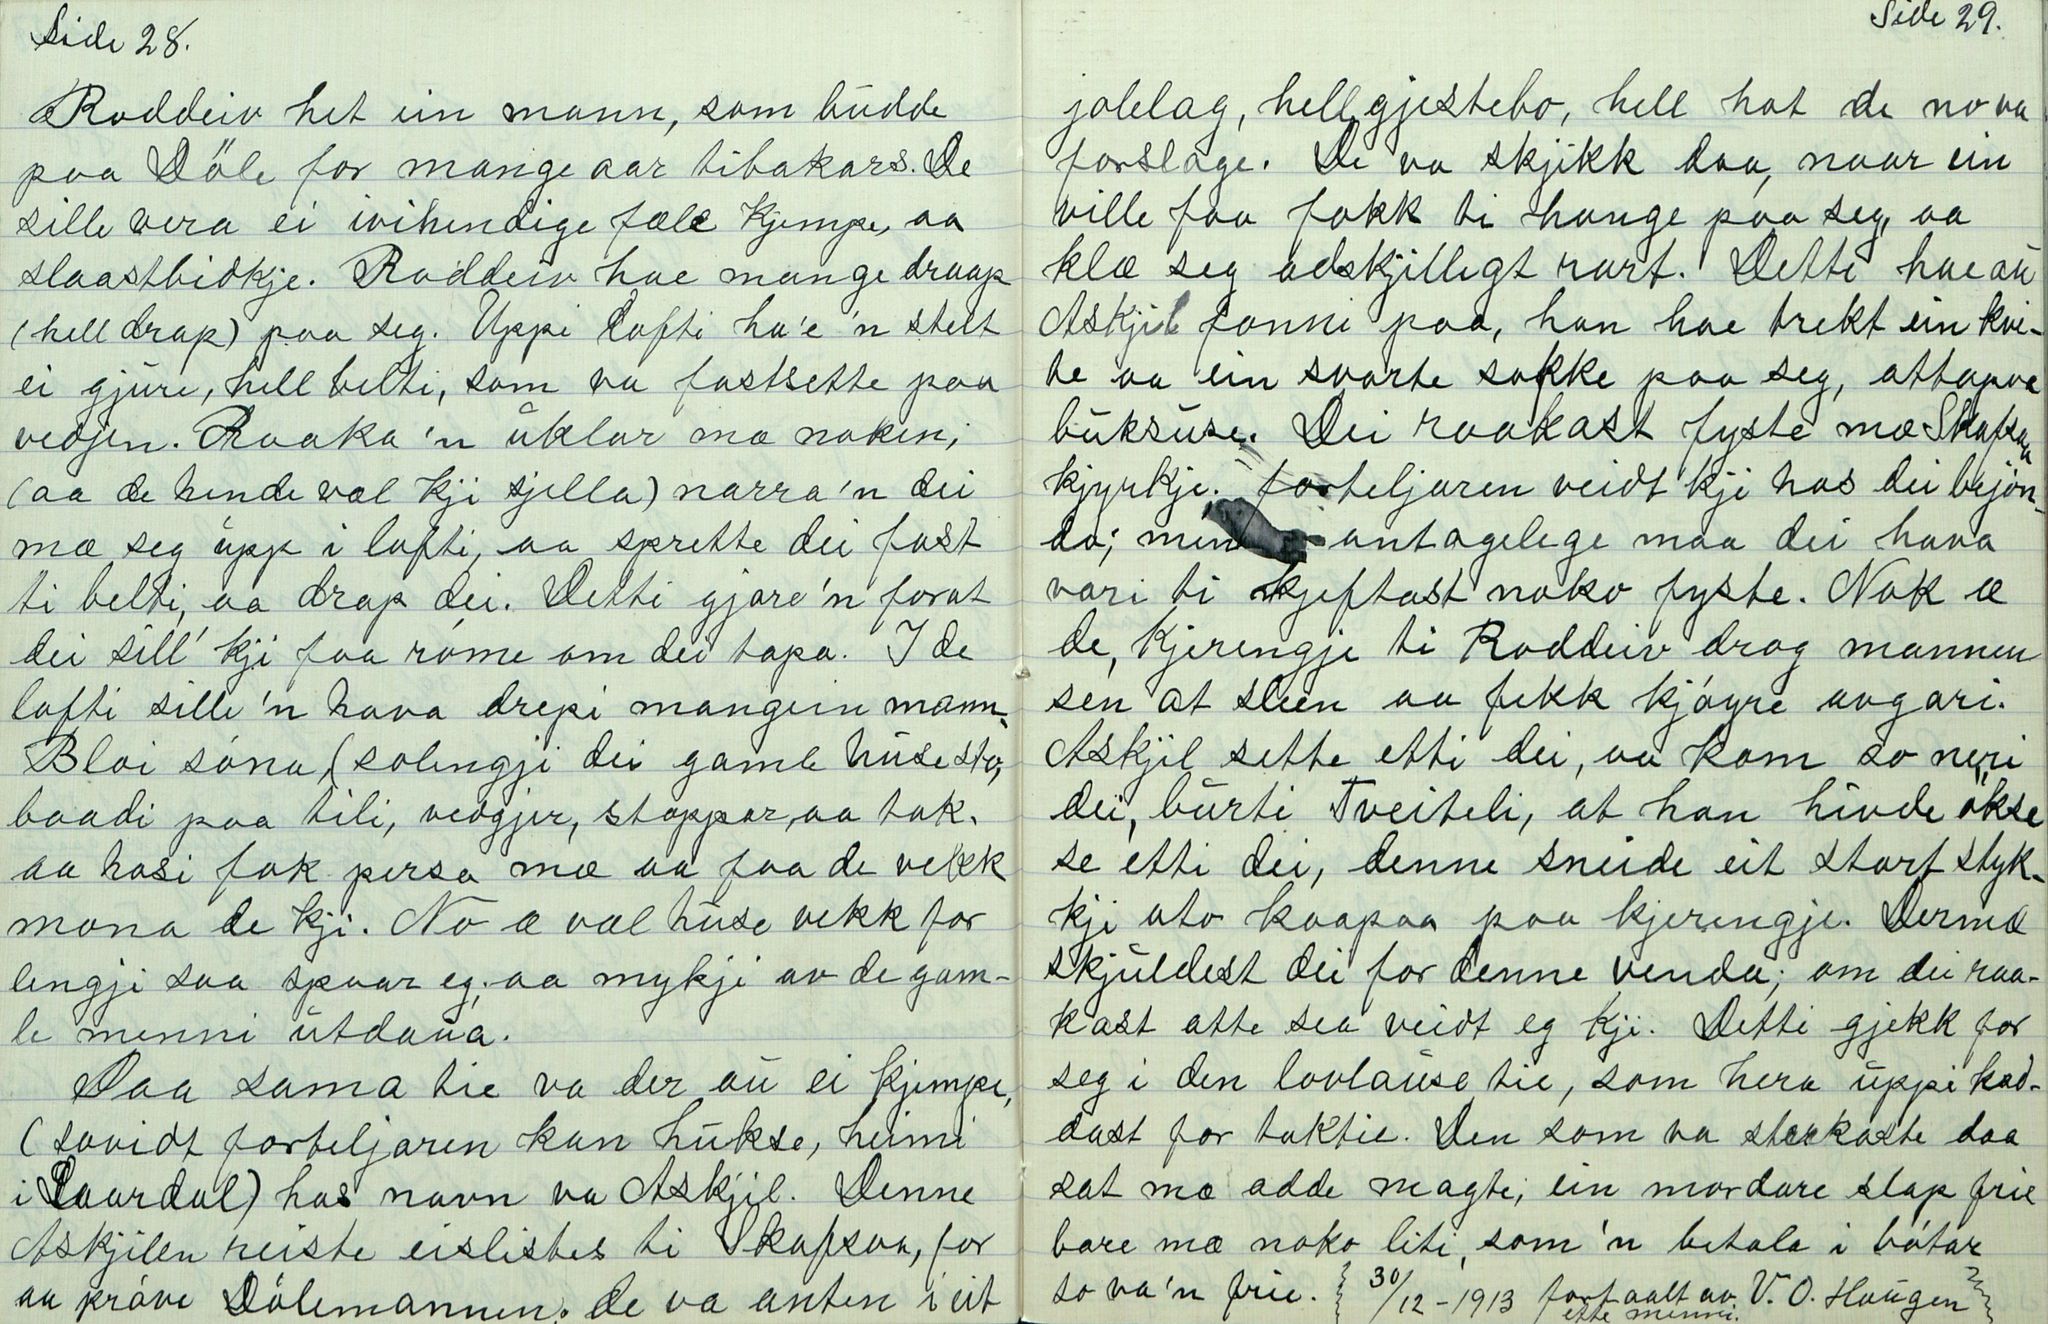 Side 28.
Roddeiv het ein mann, som budde
paa Döle for mange aar tibakars. De
sille vera ei ivihendige fæle kjempe, aa
slaastbidkje. Roddeiv hae mange draap
(hell drap) paa seg. Uppi lofti ha'e 'n stelt
ei gjure, hell belti, som va fastsette paa
vedjen. Raaka 'n uklar mæ noken,
(aa de hende vael kji sjella) narra 'n dei
mæ seg upp i lofti, aa sprette dei fast
ti belti, aa drap dei. Detti gjore 'n forat
dei sill' kji faa róme om dei tapa. I de
lofti sille 'n hava drepi mangein mann.
Bloi sóna, (solengji dei gamle huse sto,
baadi paa tili, vedgjer, stoppar, aa tak.
aa hosi fok persa mæ aa faa de vekk
mona de kji. No æ vael huse vekk for
lengji saa spaar eg, aa mykji av de gam-
le menni utdaua.
Daa sama tie va der au ei kjempe,
(sovidt forteljaren kan hukse, heimi
i Laardal) has navn va Askjil. Denne
Askjilen reiste eislistes ti Skafsaa, for
aa pröve Dölemannen. de va anten i eit
Side 29.
jolelag, hell gjestebo, hell hot de no va
forslage. De va skjikk daa, naar ein
ville faa fokk ti hange paa seg, aa
klæ seg adskjilligt rart. Detti hae au
Askjil fonni paa, han hae trekt ein kvi-
te aa ein svarte sokke paa seg, attapaa
buksuse. Dei raakast fyste mæ Skafsaa
kjyrkje. forteljaren veidt kji hos dei bejón-
do; men antagelege maa dei hava
vori ti kjeftast noko fyste. Nok æ
de, kjerengje ti Roddeiv drog mannen
sen at sleen aa fekk kjöyre avgari.
Askjil sette etti dei, aa kom so neri
dei, burti Tveiteli, at han hivde ökse
se etti dei, denne sneide eit stort styk-
kji uto kaapaa paa kjerengje. Dermæ
skjuldest dei for denne venda; om dei raa-
kast atte sea veidt eg kji. Detti gjekk for
seg i den lovlause tie, som hera uppi kad-
dast for taktie. Den som va sterkaste daa
sat mæ adde magte, ein mordare slap frie
bare mæ noko liti, som 'n betala i bótar
so va 'n frie. 30/12-1913 fortaalt av V. O. Haugen
ette menni.